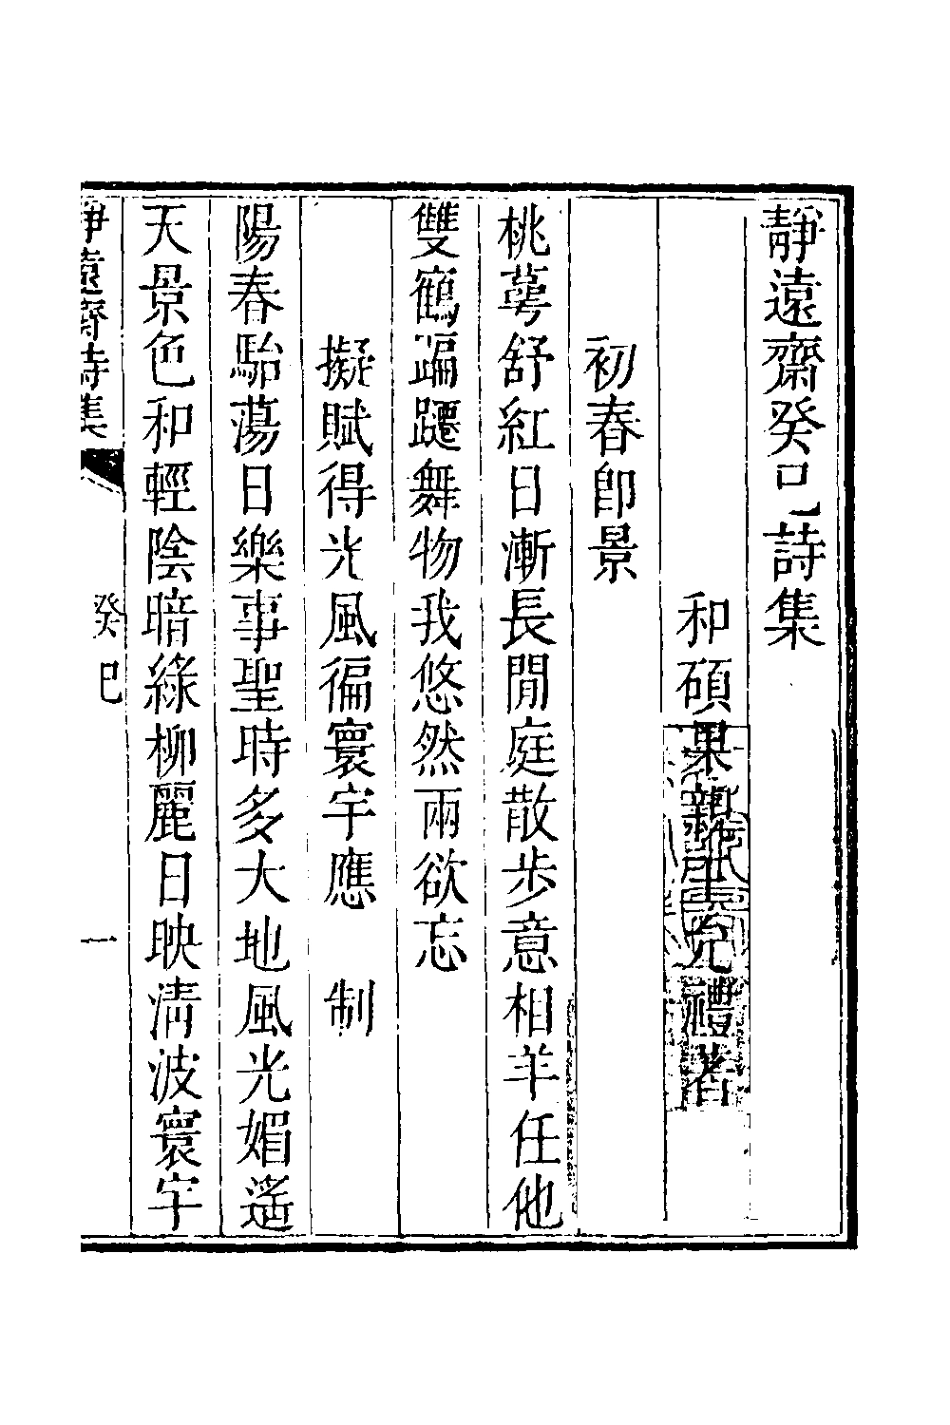 靜遠齋癸巳詩集
和碩果親王允禮著
初春卽景
桃萼舒紅日漸長閒庭散步意相羊任他
雙鶴蹁躚舞物我悠然兩欲忘
擬賦得光風徧寰宇應 制
陽春駘蕩日樂事聖時多大地風光媚遙
天景色和輕陰暗綠柳麗日映淸波寰宇
靜遠齋詩集 癸巳 一